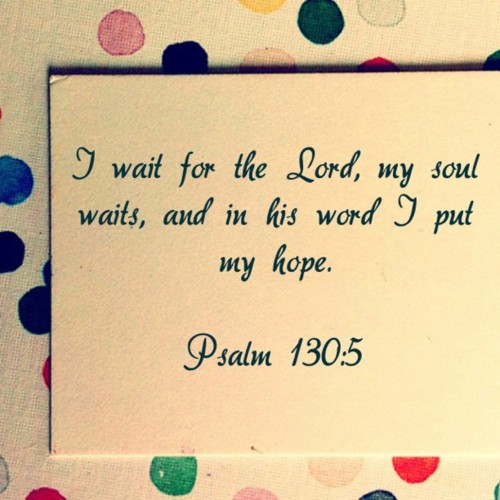 I wait for the Lord, my soul
waits, and in his word I put
my hope.
Psalm 130:5